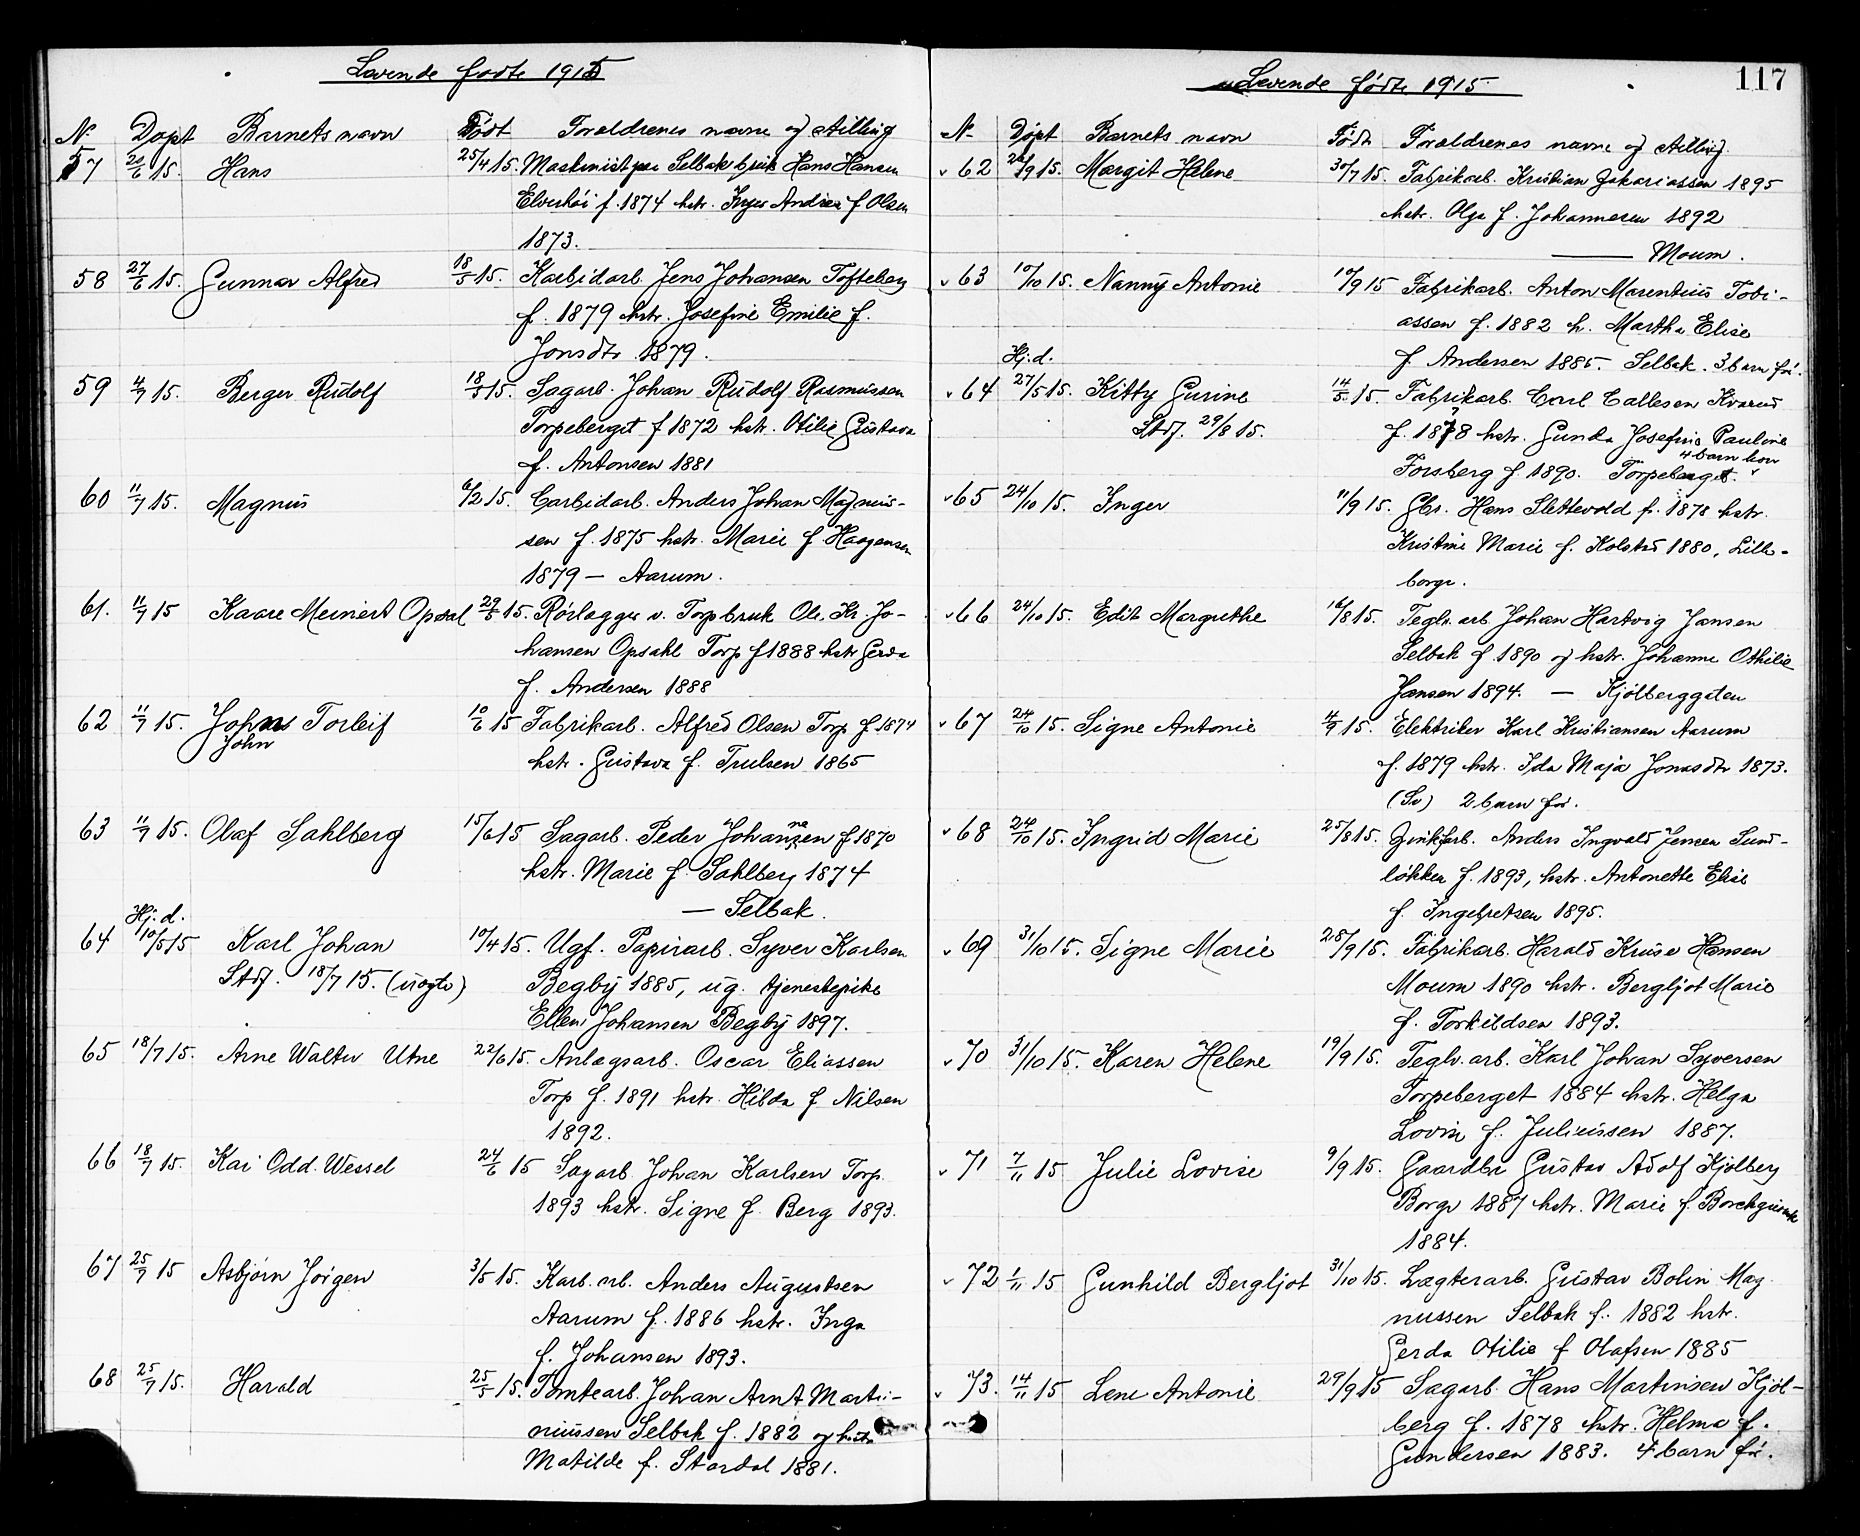 Levende fødte 1915
N. Døpt Barnets navn Født Forældrenes navne og stilling
57 20/6 15. Hans 25/4 15. Maskinist paa Selbak bruk Hans Hansen
Elverhöi f. 1874 hstr. Inger Andrea f Olsen
1873.
58 27/6 15. Gunnar Alfred 18/5 15. Karbidarb. Jens Johansen Tofteberg
f. 1879 hstr. Josefine Emilie f.
Jonsdtr 1879.
59 4/7 15. Berger Rudolf 18/5 15. Sagarb. Johan Rudolf Rasmussen
Torpeberget f 1872 hstr. Otilie Gustava
f. Antonsen 1881
60 11/7 15. Magnus 6/2 15. Carbidarb. Anders Johan Magnus-
sen f. 1875 hstr. Marie f. Haagensen
1879 — Aarum.
61. 11/7 15 Kaare Meinert Opsal 29/5 15. Rörlægger v. Torp bruk Ole Kr. Jo-
hansen Opsahl Torp f 1888 hstr Gerda
f. Andersen 1888
62 11/7 15. Johns Torleif 10/6 15 Fabrikarb. Alfred Olsen Torp f 1874
John
hstr. Gustava f. Trulsen 1865
63 11/7 15. Olaf Sahlberg 15/6 15 Sagarb. Peder Johannesen f 1870
hstr. Marie f. Sahlberg 1874
— Selbak.
Hj. d.
64 10/5 15 Karl Johan 10/4 15. Ugf. Papirarb. Syver Karlsen
Stdf. 18/7 15. (uægte) Begby 1885, ug. tjenestepike
Ellen Johansen Begby 1897.
65 18/7 15. Arne Walter Utne 22/6 15. Anlægsarb. Oscar Eliassen
Torp f. 1891 hstr. Hilda f. Nilsen
1892.
66 18/7 15. Kai Odd Wessel 24/6 15 Sagarb Johan Karlsen Torp
1893 hstr. Signe f. Berg 1893.
67 25/7 15 Asbjørn Jørgen 3/5 15. Karb. arb. Anders Augustsen
Aarum f. 1886 hstr. Inga
f. Johansen 1893.
68 25/7 15. Harald 25/5 15. Tomtearb. Johan Arnt Marti-
niussen Selbak f. 1882 og hstr
Matilde f. Stordal 1881.
117
Levende fødte 1915
N. Døpt Barnets navn Født Forældrenes navne og stilling.
62 26/9 15. Margit Helene 30/7 15. Fabrikarb. Kristian Zakariassen 1895
hstr. Olga f. Johannesen 1892
— Moum.
63 10/10 15. Nanny Antonie 10/9 15 Fabrikarb. Anton Marentius Tobi-
assen f. 1882 h. Martha Elise
f Andersen 1885. Selbak. 3 barn før.
Hj. d.
64 27/5 15. Kitty Gurine 14/5 15. Fabrikarb. Carl Callesen Kvarud
Stdf. 29/8 15. f. 1878 hstr. Gunda Josefine Pauline
4 barn
Forsberg f 1890. Torpeberget.
65 24/10 15. Inger 11/9 15. Gbr. Hans Slettevold f. 1878 hstr.
Kristine Marie f. Kolstad 1880, Lille-
borge.
66 24/10 15. Edit Margrethe 16/8 15. Teglv. arb Johan Hartvig Jansen
Selbak f 1890 og hstr. Johanne Othilie
Jansen 1894. — Kjölberggden
67 24/10 15. Signe Antonie 4/9 15. Elektriker Karl Kristiansen Aarum
f. 1879 hstr. Ida Maja Jonasdtr 1873.
(Sv) 2 barn før.
68 24/10 15. Ingrid Marie 25/8 15. Zinkfarb. Anders Ingvald Jensen Sund-
løkken f. 1893, hstr. Antonette Elise
f. Ingebretsen 1895.
69 31/10 15. Signe Marie 28/9 15. Fabrikarb. Harald Kruse Hansen
Moum 1890 hstr. Bergljot Marie
f. Torkildsen 1893.
70 31/10 15. Karen Helene 19/9 15. Teglv. arb. Karl Johan Syversen
Torpeberget 1884 hstr. Helga
Lovise f. Juliussen 1887.
71 7/11 15 Julie Lovise 9/9 15. Gaardbr Gustav Adolf Kjölberg
Borge 1887 hstr. Marie f. Borchgrevink
1884.
72 1/11 15 Gunhild Bergljot 31/10 15. Lægterarb. Gustav Bolin Mag
nussen Selbak f. 1882 hstr.
Gerda Otilie f Olafsen 1885
73. 14/11 15 Lene Antonie 29/9 15 Sagarb. Hans Martinsen Kjøl-
berg f. 1878 hstr. Helma f.
Gundersen 1883. 4 barn før.